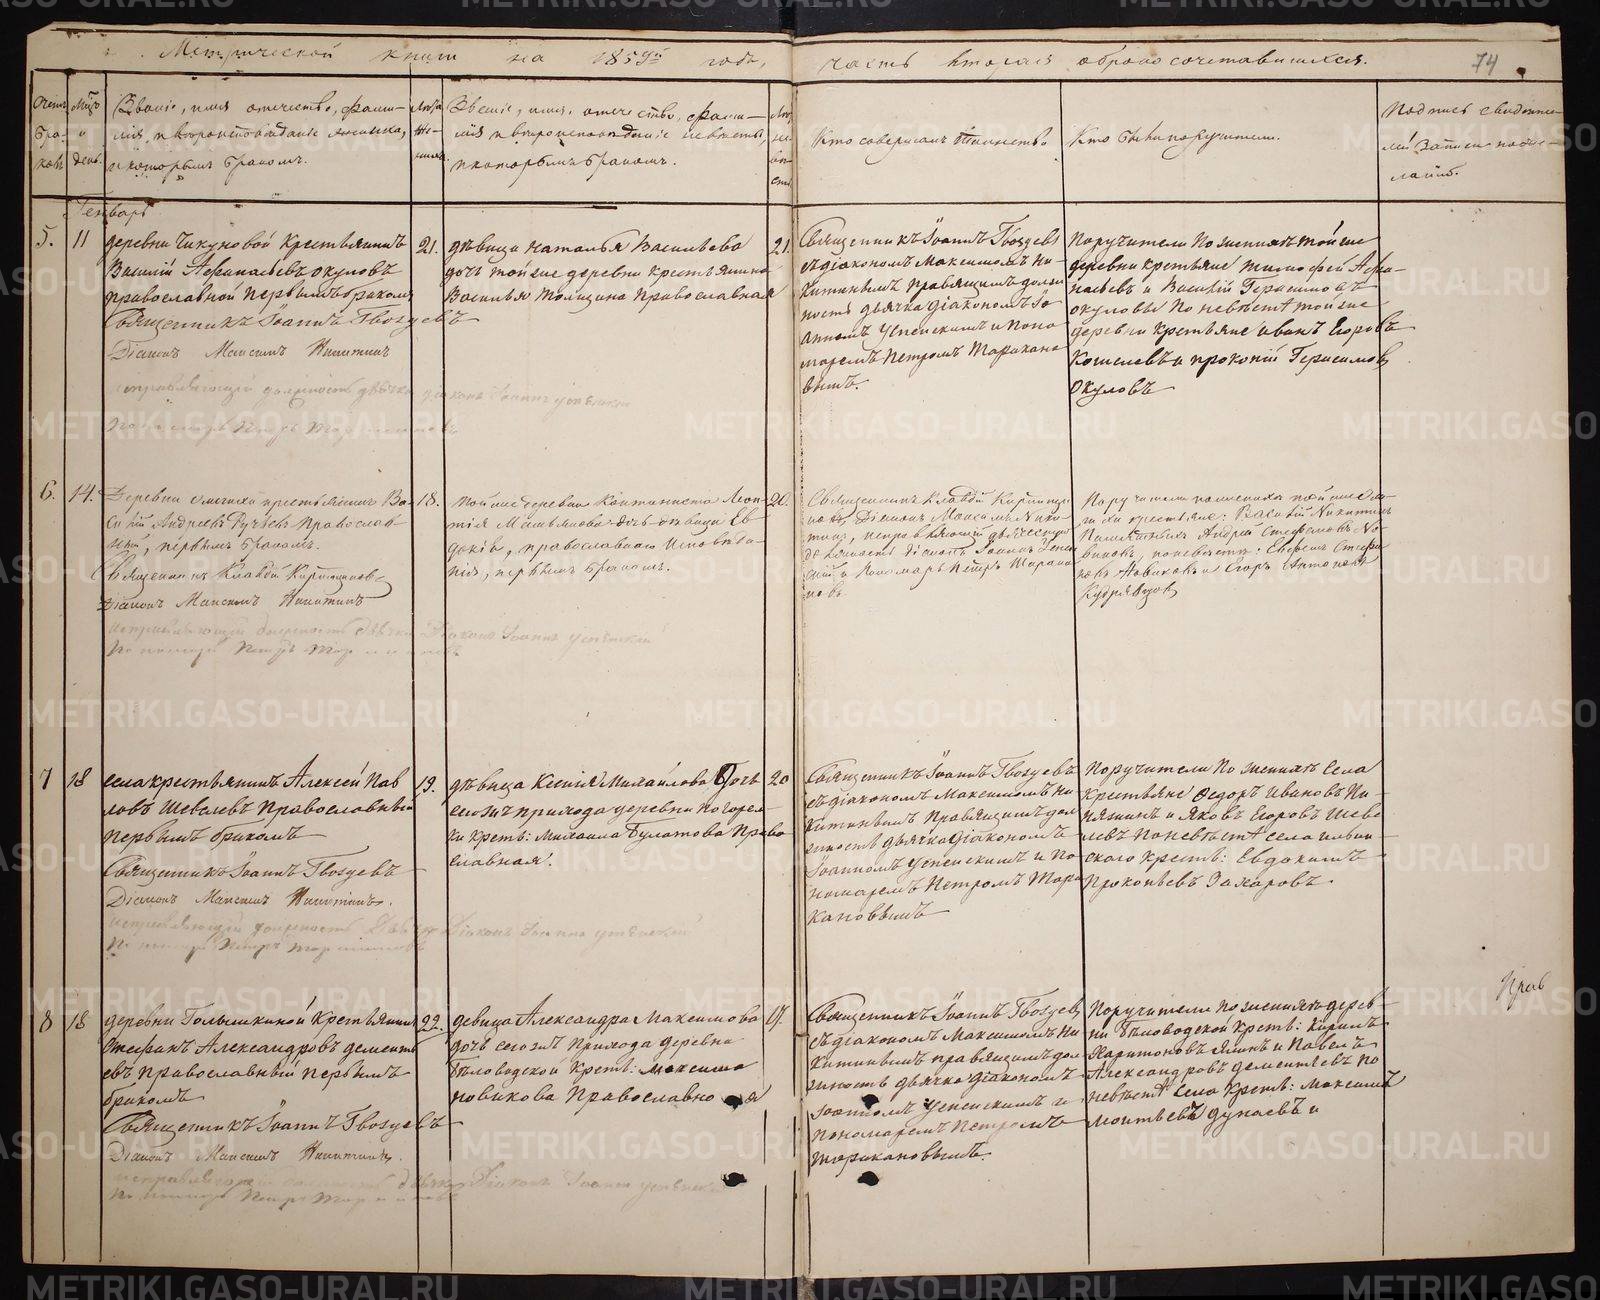 Метрической книги на 1859й годъ,
часть вторая о бракосочетавшихся.
74
Счетъ
бра-
ковъ
Мѣс.
и
день.
Званіе, имя отечество, фами-
лія и вѣроисповѣданіе жениха,
и которымъ бракомъ.
Лѣта
же-
ниха
Званіе, имя, отечество, фами-
лія и вѣроисповѣданіе невѣсты,
и которымъ бракомъ.
Кто совершалъ таинство
Кто были поручители.
Подпись свидѣте-
лей записи по же-
ланію.
Генварь
5.
11
деревни Чикуновой Крестьянинъ
Василій Афанасьевъ окуловъ
православной первымъ бракомъ
Священникъ Іоаннъ Гвоздевъ
Діаконъ Максимъ Никитинъ
исправляющій должность дьячка діаконъ Іоаннъ Успенскій
Пономарь Петръ Таракановъ
21.
дѣвица Наталья Васильева
дочь той же деревни крестьянина
Василья Православная
21.
Священникъ Іоаннъ Гвоздевъ
съ діакономъ Максимомъ Ни-
китинымъ правящимъ долж
ность дьячка діакономъ Іо-
анномъ Успенскимъ и поно
маремъ Петромъ Таракано
вымъ.
Поручители По женихѣ той же
деревни крестьяне Тимофей Афа-
насьевъ и Василій Герасимовъ
окуловы По невѣстѣ той же
деревни крестьяне иванъ Егоровъ
Кошелевъ и прокопій Герасимовъ
Окуловъ
6.
14.
Деревни крестьянинъ Ва-
силій Андреевъ Ручьевъ Православ-
ный, первымъ бракомъ.
Священникъ Клавдій Кирпищиковъ
Діаконъ Максимъ Никитинъ
исправляющій должность дьячка Діаконъ Іоаннъ Успенскій
Пономарь Петръ Таракановъ
18.
той же деревни Кантониста Леон-
тія дочь дѣвица Ев-
докія, православнаго Исповѣда-
нія, первымъ бракомъ.
20.
Священникъ Клавдій Кирпищи-
ковъ, Діаконъ Максимъ Ники-
тинъ, исправляющій дьяческую
должность Діаконъ Іоаннъ Успен
скій и Пономарь Петръ Тарака
новъ
Поручители по женихѣ той же
крестьяне: Василій Никитинъ
Андрей Стефановъ Но-
виковъ, по невѣстѣ: Стефа-
новъ Новиковъ и Егоръ Антоновъ
Кудрявцовъ
7
18
села крестьянинъ Алексей Пав
ловъ Шевелевъ Православный
первымъ бракомъ
Священникъ Іоаннъ Гвоздевъ
Діаконъ Максимъ Никитинъ.
исправляющій должность Дьячка Діаконъ Іоаннъ Успенскій
Пономарь Петръ Таракановъ
19.
дѣвица Ксенія Михайлова Дочь
сегожъ прихода деревни погорел-
ки крест: Михаила Булатова Право
славная.
20
Священникъ Іоаннъ Гвоздевъ
съ діакономъ Максимомъ Ни
китинымъ Правящимъ дол
жность дьячка Діакономъ
Іоанномъ Успенскимъ и по
номаремъ Петромъ Тара
кановымъ
Поручители По женихѣ Села
крестьяне Ѳедоръ ивановъ
и Яковъ Егоровъ Шеве
левъ По невѣстѣ села
крест: Евдокимъ
Прокопьевъ Захаровъ
8
18
деревни Голышкиной Крестьянинъ
Стефанъ Александровъ дементь
евъ Православный первымъ
бракомъ
Священникъ Іоаннъ Гвоздевъ
Діаконъ Максимъ Никитинъ.
исправляющій должность дьячка Діаконъ Іоаннъ Успенскій
Пономарь Петръ Таракановъ
22.
девица Александра Максимова
дочь сегожъ Прихода деревни
Бѣловодской Крест: Максима
новикова Православная
19.
Священникъ Іоаннъ Гвоздевъ
съ діакономъ Максимомъ Ни
китинымъ правящимъ дол
жность дьячка діакономъ
Іоанномъ Успенскимъ и
пономаремъ Петромъ
таракановымъ.
Поручители По женихѣ дерев-
ни Бѣловодской Крест: Кирилъ
Харитоновъ и Павелъ
Александровъ дементьевъ По
невѣстѣ Села Крест: Максимъ
дунаевъ и
METRIKI.GASO-URAL.RU